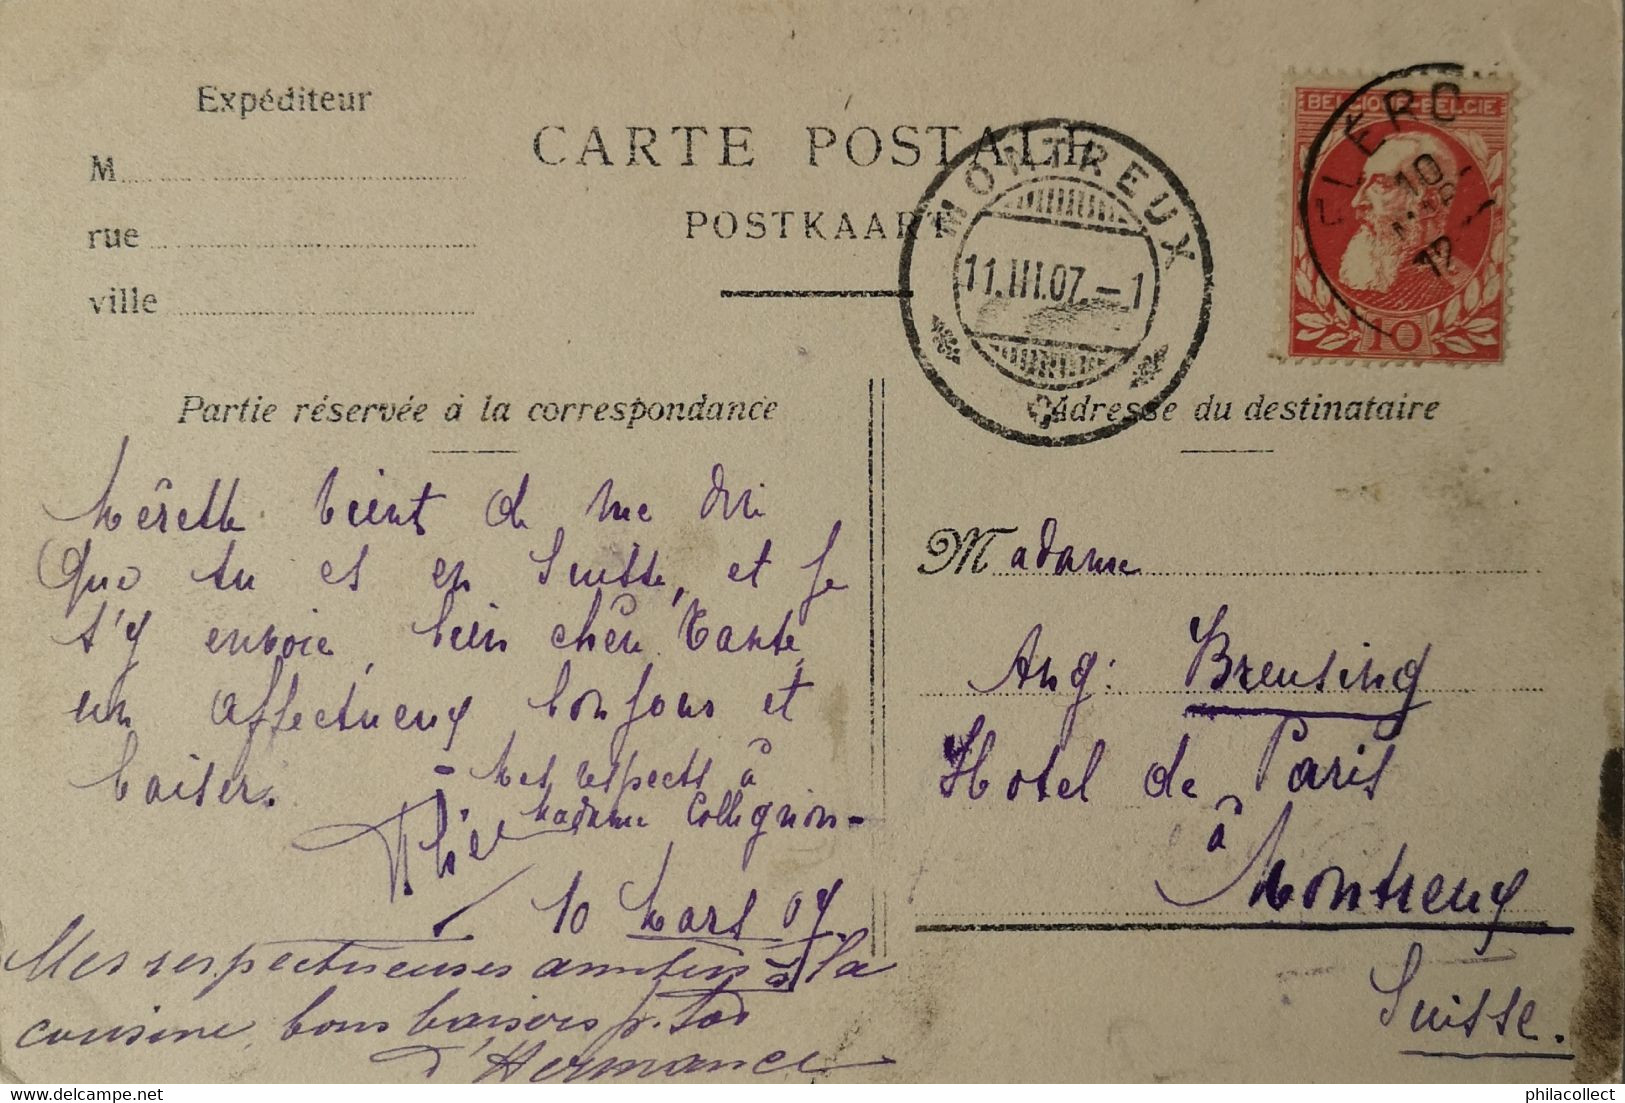 Expéditeur
M
rue
ville
CARTE POSTALE
POSTKAART
MONTREUX
11.III.07.–1
BELGIQUE-BELGIE
CLERC
10
MARS
12
10
Partie réservée à la correspondance
Adresse du destinataire
vient de me dire
Que tu es en Suisse, et je
t'y envoie, bien chère Tante,
un affectueux bonjour et
baiser.
- Mes respects à
Madame Collignon-
10 Mars 07
Mes respectueuses amitiés à la
cousine, bons baisers p. toi
d'Hermance
Madame
Aug: Breusing
Hotel de Paris
à
Montreux
Suisse.
philacollect